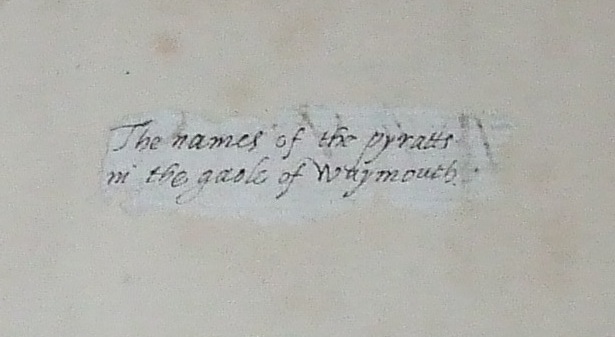 The names of the pyratts
in the gaole of Waymouth.